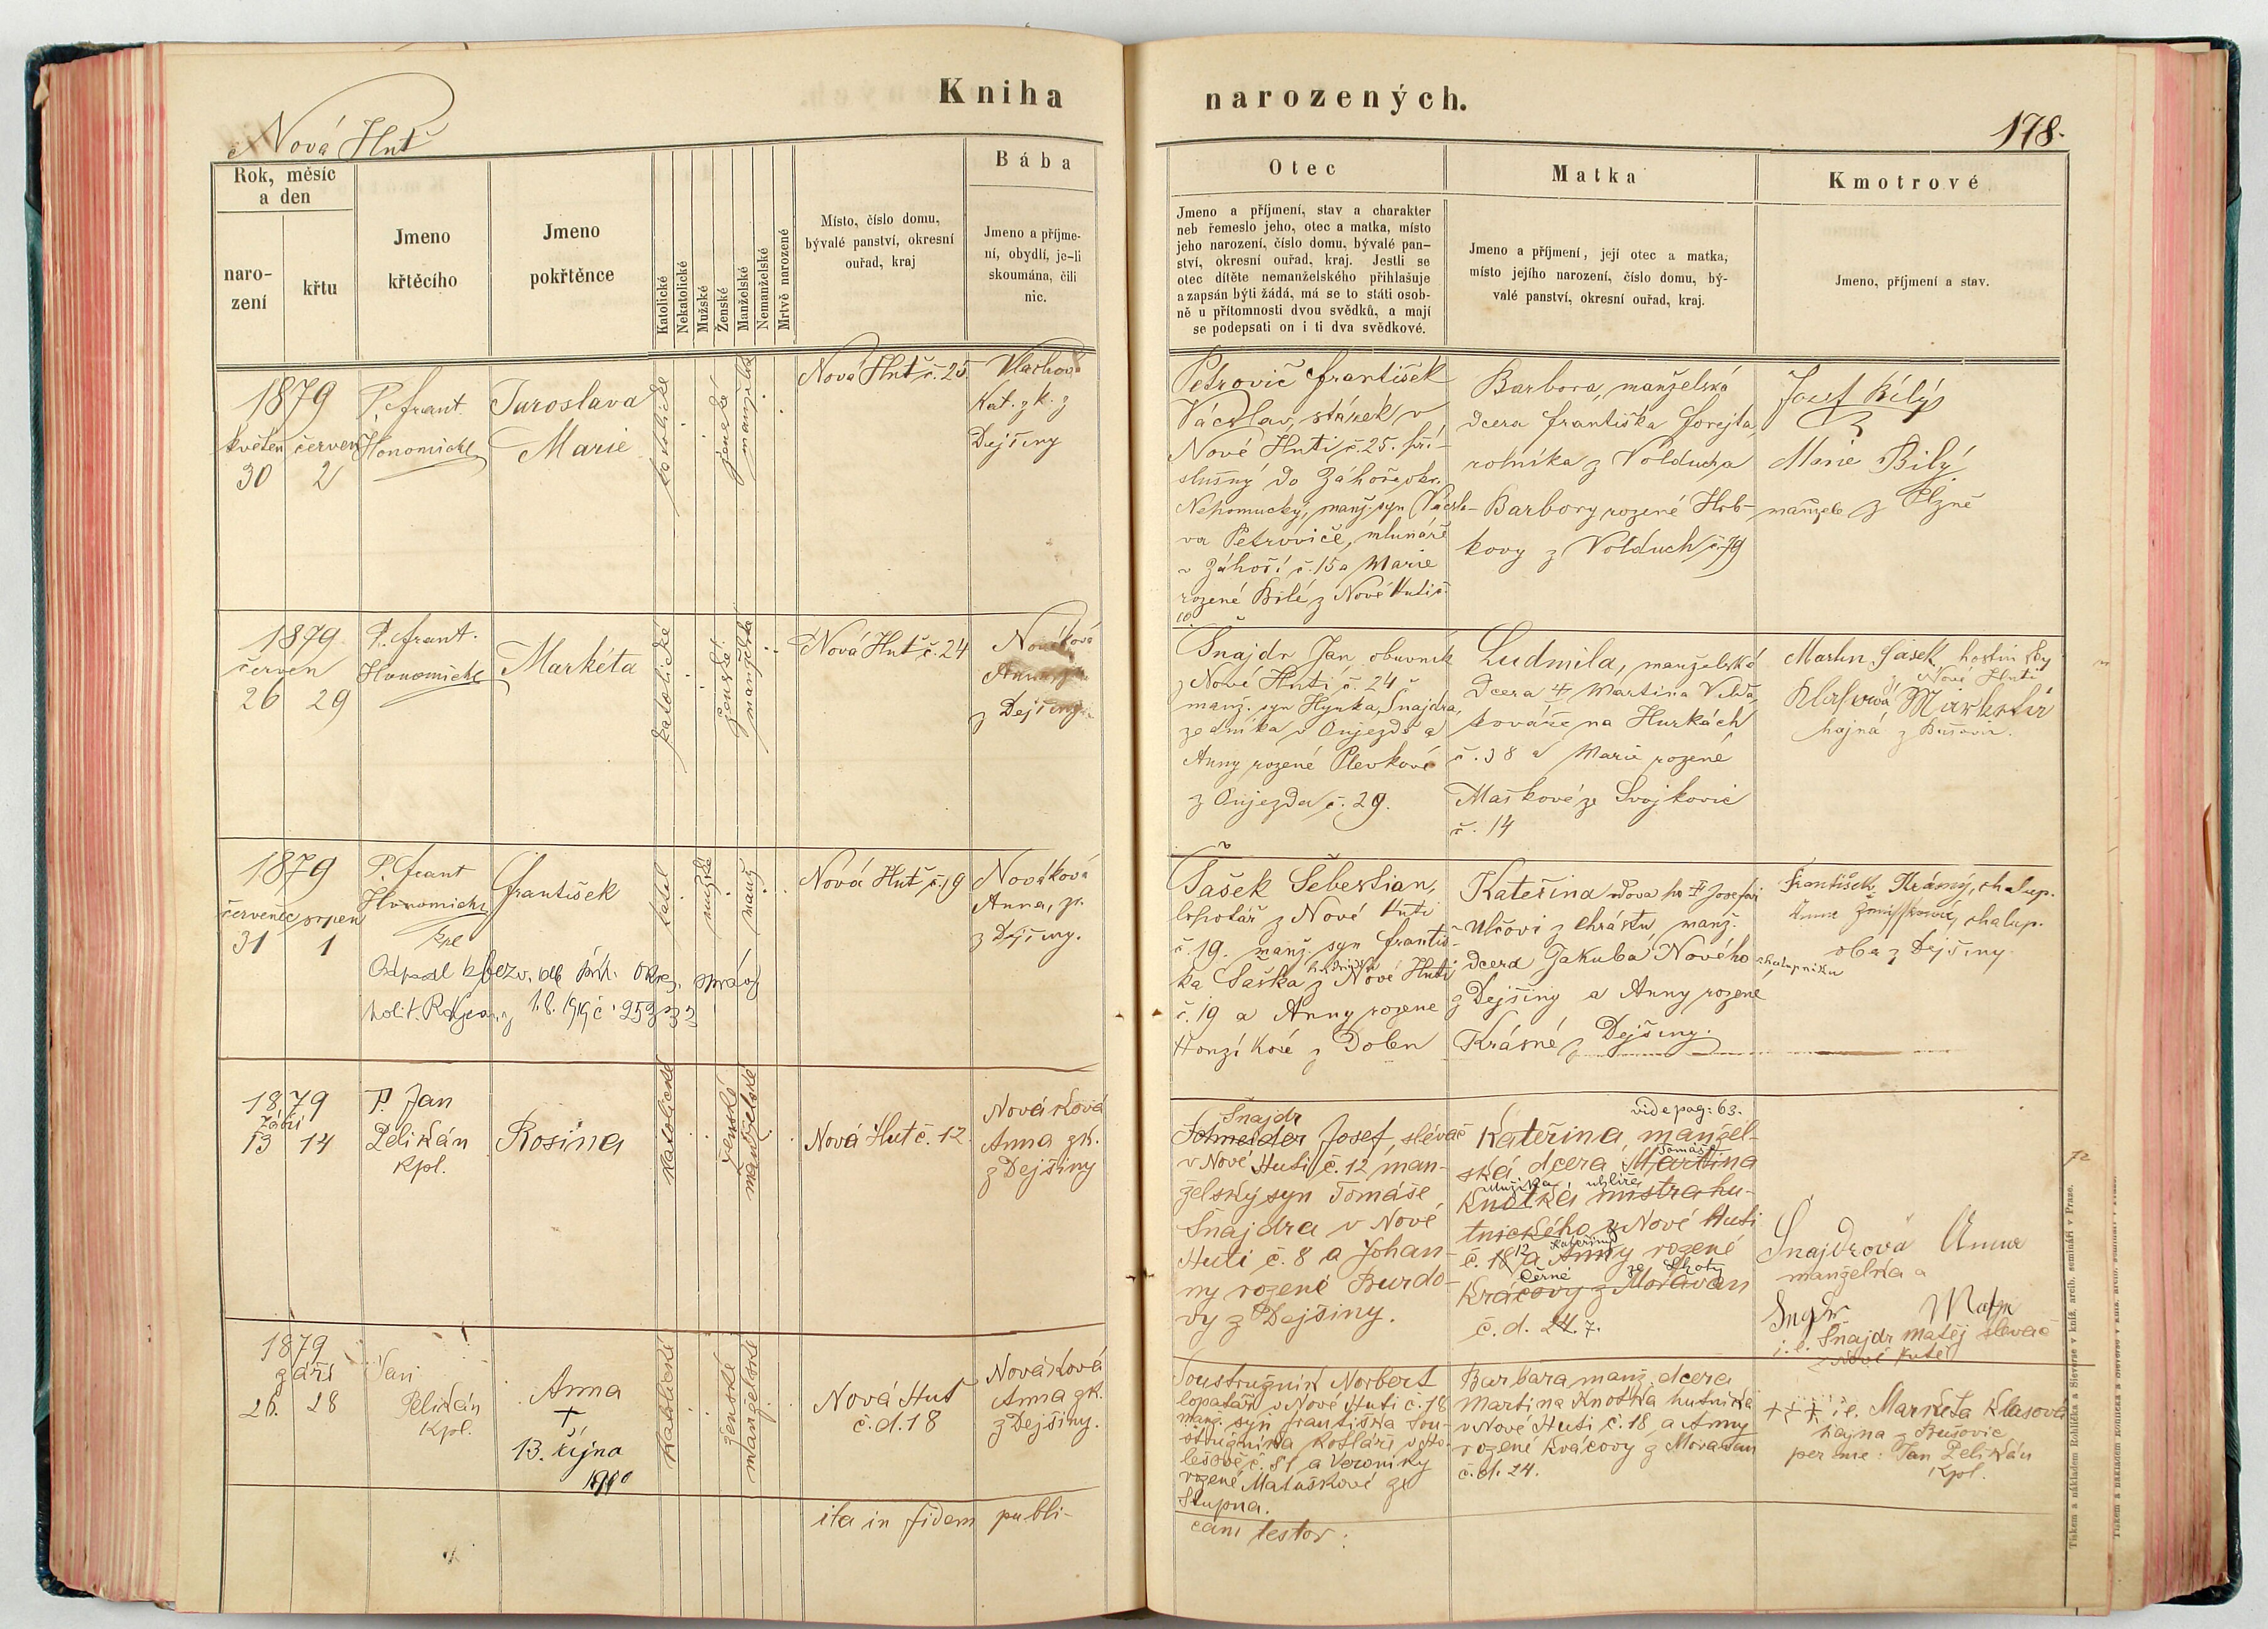 Kniha narozených.
Nová Huť
178.
Rok, měsíc a den
naro-
zení
křtu
Jmeno
křtěcího
Jmeno
pokřtěnce
Katolické
Nekatolické
Mužské
Ženské
Manželské
Nemanželské
Mrtvě narozené
Místo, číslo domu,
bývalé panství, okresní
ouřad, kraj
Bába
Jmeno a příjme-
ní, obydlí, je-li
skoumána, čili
nic.
Otec
Jmeno a příjmení, stav a charakter
neb řemeslo jeho, otec a matka, místo
jeho narození, číslo domu, bývalé pan-
ství, okresní ouřad, kraj. Jestli se
otec dítěte nemanželského přihlašuje
a zapsán býti žádá, má se to státi osob-
ně u přítomnosti dvou svědků, a mají
se podepsati on i ti dva svědkové.
Matka
Jmeno a příjmení, její otec a matka,
místo jejího narození, číslo domu, bý-
valé panství, okresní ouřad, kraj.
Kmotrové
Jmeno, příjmení a stav.
1879
květen červen
30 2
P. Frant.
Honomichl
Jaroslava
Marie
katolické
ženské
manželské
Nová Huť č. 25.
Vlachová
Kat. zk. z
Dejšiny
Petrovič František
Václav, stárek v
Nové Huti č. 25. pří-
slušný do Záhoří okr.
Nepomucký, manž. syn Václa-
va Petroviče, mlynáře
v Záhoří č. 15 a Marie
rozené Bílé z Nové Huti č.
10.
Barbora, manželská
dcera Františka Forejta,
rolníka z Volducha
Barbory rozené Hrb-
kovy z Volduch č. 79
Josef Bílý
Marie Bílý
manželé z Plzně
1879
červen
26 29
P. Frant.
Honomichl
Markéta
katolické
ženské
manželská
Nová Huť č. 24
Nováková
z Dejšiny
Šnajdr Jan, obuvník
z Nové Huti č. 24
manž. syn Hynka Šnajdra,
zedníka v Oujezdě a
Anny rozené Plevkové
z Oujezda č. 29.
Ludmila, manželská
dcera Martina
kováře na Hurkách
č. 38 a Marie rozené
Maškové ze Svojkovic
č. 14
Martin Sašek hostinský
z Nové Huti
Klasová Markéta
hajná z Bušovic.
1879
červenec srpen
31 1
P. Frant
Honomichl
kpl
František
katol
mužské
manž
Nová Huť č. 19
Nováková
Anna, zk.
z Dejšiny.
Odpadl k bezv. dle přík. okres. správy
polit. Rokycany
Sašek Šebestian,
lopotář z Nové Huti
č. 19. manž. syn Františ-
ka Saška z Nové Huti
č. 19 a Anny rozené
Honzíkové z Dolen
Kateřina vdova po Josefovi
z Chrástu, manž.
dcera Jakuba Nového chalupníka
z Dejšiny a Anny rozené
Krásné z Dejšiny.
František Krásný, chalup.
Anna chalup.
oba z Dejšiny.
1879
Září
13 14
P. Jan
Pelikán
kpl.
Rosina
katolické
ženské
manželské
Nová Huť č. 12
Nováková
Anna zk.
z Dejšiny
Šnajdr
Schneider Josef, slévač
v Nové Huti č. 12, man-
želský syn Tomáše
Šnajdra v Nové
Huti č. 8 a Johan-
ny rozené Burdo-
vy z Dejšiny.
vide pag: 63.
Kateřina, manžel-
Tomáše
ská dcera Martina
Mužíka, uhlíře
Knotka mistra hu-
tnického z Nové Huti
12 Kateřiny
č. 18 a Anny rozené
Černé ze Lhoty
Kvácovy z Moravan
č. d. 24. 7.
Šnajdrová Anna
manželka a
Matěj
i. e. Šnajdr Matěj slévač
z Nové Hutě
1879
září
26. 28
Jan
Pelikán
Kpl.
Anna
†
13. října
katolické
ženské
manželské
Nová Huť
č. d. 18
Nováková
Anna zk.
z Dejšiny.
Soustružník Norbert
lopatář v Nové Huti č. 18
manž. syn Františka Sou-
stružníka kotláře v Ho-
lešově č. 81 a Veroniky
rozené Matouškové ze
Stupna.
Barbara manž. dcera
Martina Knotka hutníka
v Nové Huti č. 18, a Anny
rozené Kvácovy z Moravan
č. d. 24.
+++ i. e. Markéta Klasová
hajná z Bušovic
per me: Jan Pelikán
Kpl.
ita in fidem publi-
cam testor:
Tiskem a nákladem Rohlíčka a Sieverse v kníž. arcib. semináři v Praze.